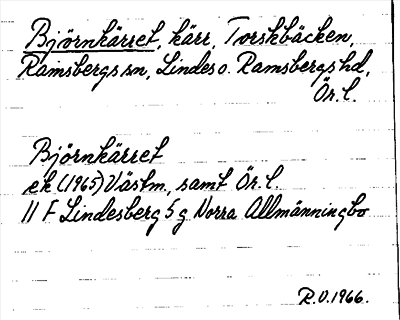 Björnkärret, kärr, Torskbäcken,
Ramsbergs sn, Lindes o. Ramsbergs hd,
Ör. l.
Björnkärret
ek (1965) Västm., samt Ör. l.
11 F Lindesberg 5 g Norra Allmänningbo
R.O. 1966.